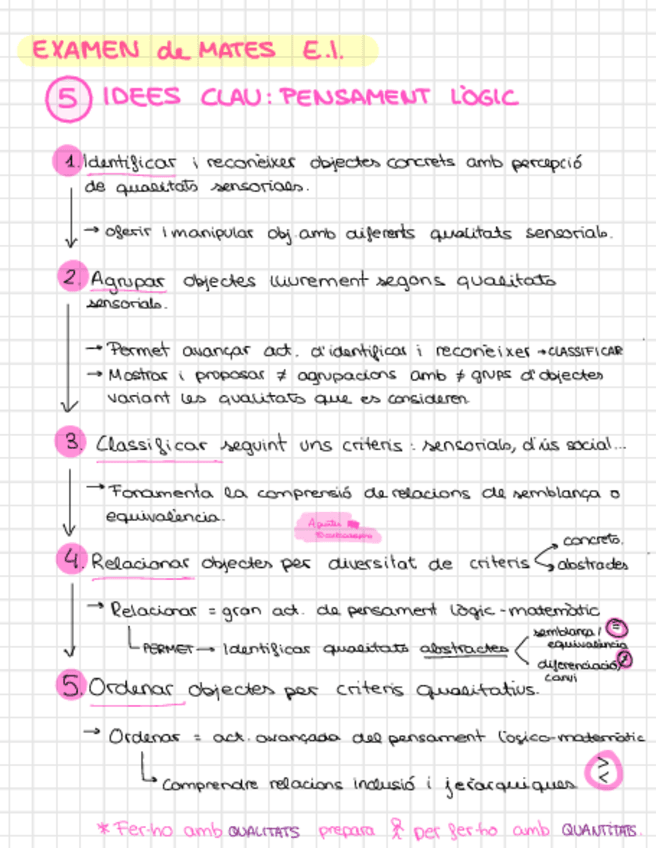 EXAMEN de MATES E.I.
5 IDEES CLAU: PENSAMENT LÒGIC
1. Identificar i reconèixer objectes concrets amb percepció
de qualitats sensorials.
→ oferir i manipular obj. amb diferents qualitats sensorials.
2. Agrupar objectes lliurement segons qualitats
sensorials.
→ Permet avançar act. d'identificar i reconèixer → CLASSIFICAR
→ Mostrar i proposar ≠ agrupacions amb ≠ grups d'objectes
variant les qualitats que es consideren
3. Classificar seguint uns criteris: sensorials, d'ús social...
→ Fonamenta la comprensió de relacions de semblança o
equivalència.
Apuntes
4. Relacionar objectes per diversitat de criteris
concrets.
abstractes
→ Relacionar = gran act. de pensament lògic-matemàtic
PERMET → Identificar qualitats abstractes
semblança / =
equivalència
diferenciació/ ≠
canvi
5. Ordenar objectes per criteris qualitatius.
→ Ordenar = act. avançada del pensament lògico-matemàtic
Comprendre relacions inclusió i jeràrquiques
>
<
* Fer-ho amb QUALITATS prepara per fer-ho amb QUANTITATS.